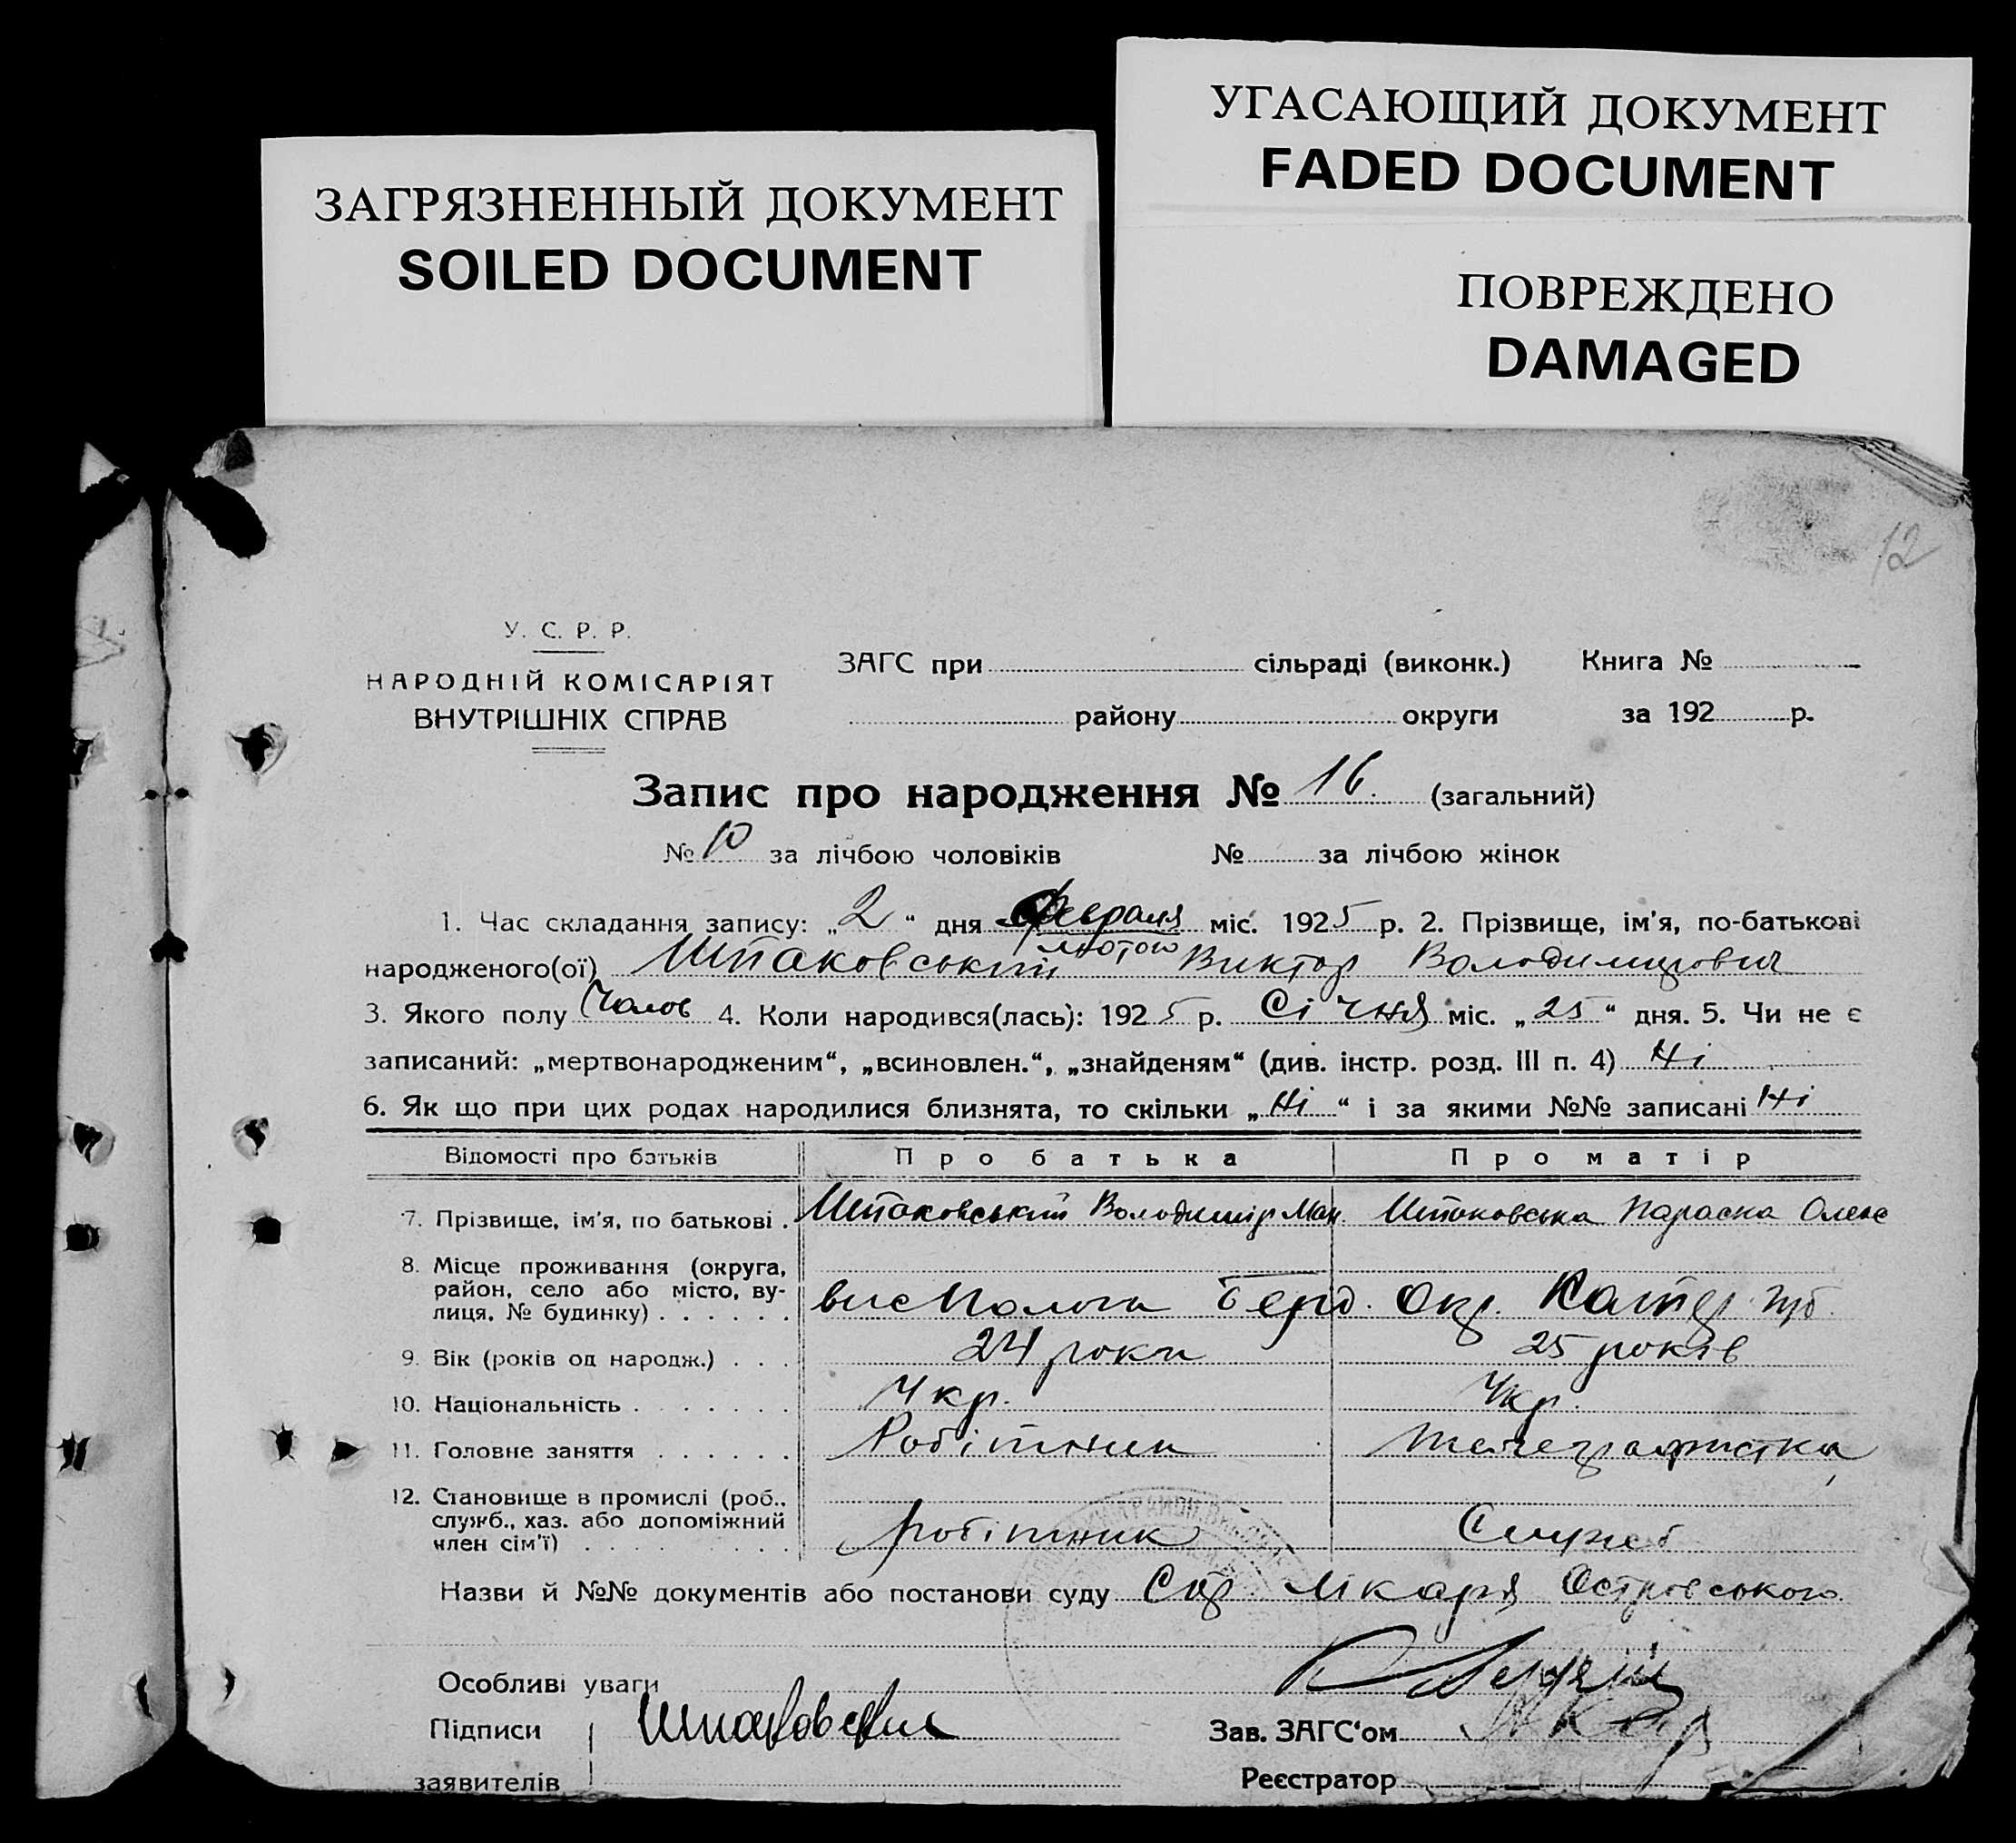 УГАСАЮЩИЙ ДОКУМЕНТ
FADED DOCUMENT
ЗАГРЯЗНЕННЫЙ ДОКУМЕНТ
SOILED DOCUMENT
ПОВРЕЖДЕНО
DAMAGED
12
У. С. Р. Р.
НАРОДНІЙ КОМІСАРІЯТ
ВНУТРІШНІХ СПРАВ
ЗАГС при сільраді (виконк.) Книга №
району округи за 192 р.
Запис про народження № 16. (загальний)
№ 10 за лічбою чоловіків № за лічбою жінок
1. Час складання запису: „2“ дня Февраля міс. 1925 р. 2. Прізвище, ім'я, по-батькові
лютого
народженого(ої) Шпаковський Виктор Володимирович
3. Якого полу Чолов 4. Коли народився(лась): 1925 р. Січня міс. „25“ дня. 5. Чи не є
записаний: „мертвонародженим“, „всиновлен.“, „знайденям“ (див. інстр. розд. III п. 4) Ні
6. Як що при цих родах народилися близнята, то скільки „Ні“ і за якими №№ записані Ні
Відомості про батьків Про батька Про матір
7. Прізвище, ім'я, по батькові . Шпаковський Володимір Мак. Шпаковська Параска Олекс
8. Місце проживання (округа,
район, село або місто, ву-
лиця, № будинку) . . . . . . Берд. Окр. Катер. губ.
9. Вік (років од народж.) . . . 24 роки 25 років
10. Національність . . . . . . . Укр. Укр.
11. Головне заняття . . . . . . Робітник телеграфистка
12. Становище в промислі (роб.,
служб., хаз. або допоміжний
член сім'ї) . . . . . . . . . робітник Служб
Назви й №№ документів або постанови суду лікаря Островського
Особливі уваги
Підписи Шпаковский Зав. ЗАГС'ом
заявителів Реєстратор